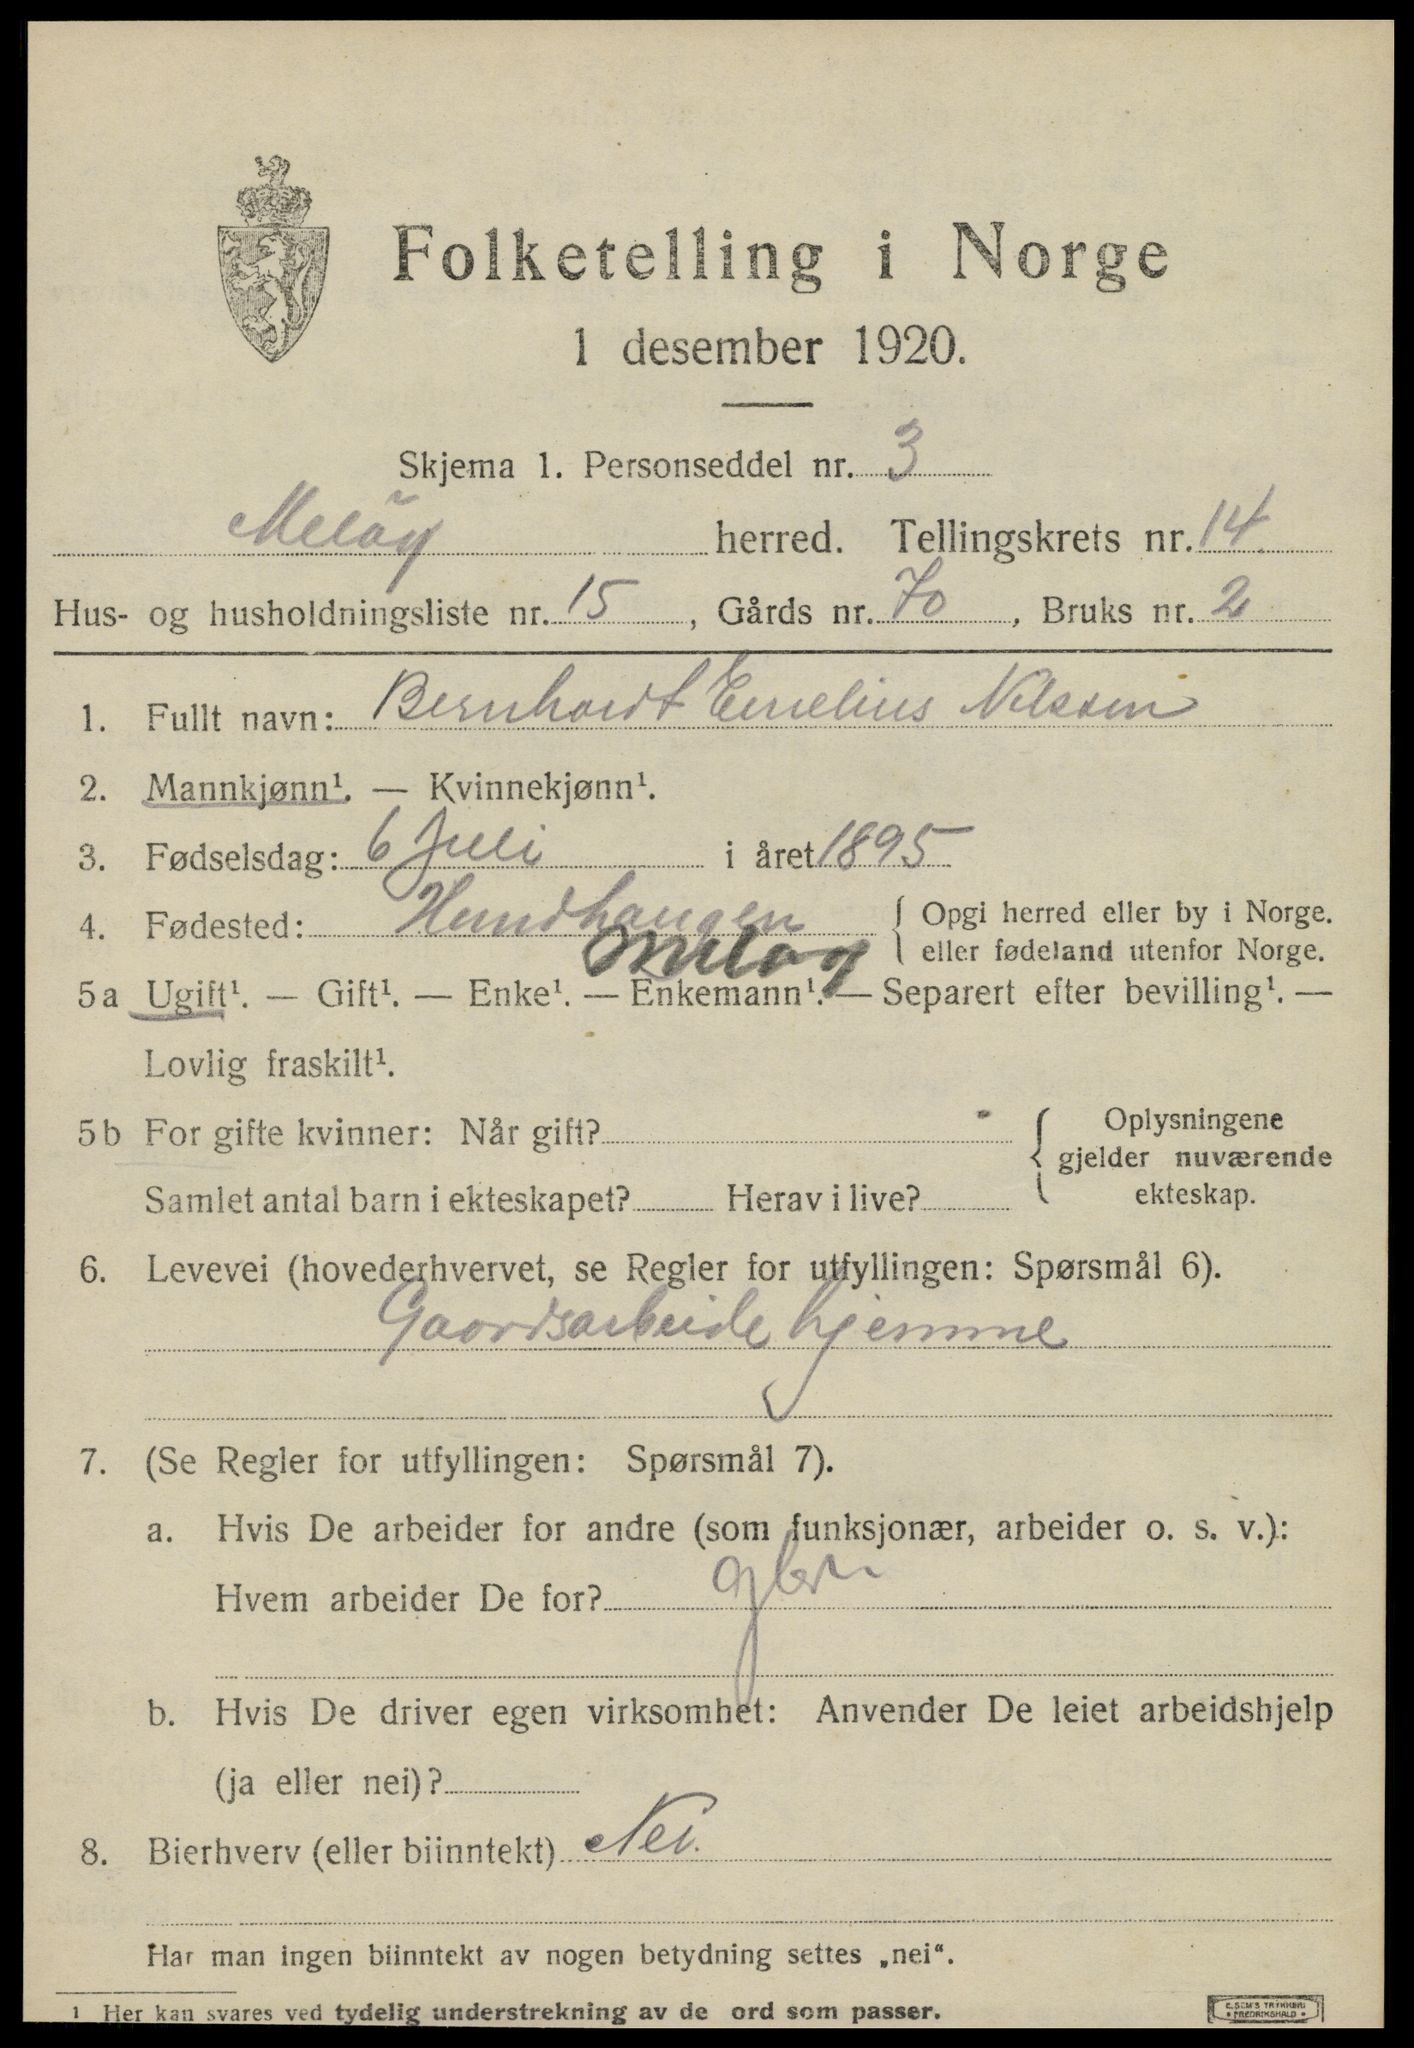 Folketelling i Norge
1 desember 1920.
Skjema 1. Personseddel nr. 3
Meløy herred. Tellingskrets nr. 14.
Hus- og husholdningsliste nr. 15, Gårds nr. 70, Bruks nr. 2
1. Fullt navn: Bernhardt Emelius Nilssen
2. Mannkjønn¹. — Kvinnekjønn¹.
3. Fødselsdag: 6 Juli i året 1895
4. Fødested: Hundhaugen
{ Opgi herred eller by i Norge.
eller fødeland utenfor Norge.
Meløy
5a Ugift¹. — Gift¹. — Enke¹. — Enkemann¹. — Separert efter bevilling¹. —
Lovlig fraskilt¹.
5b For gifte kvinner: Når gift?
Samlet antal barn i ekteskapet? Herav i live?
{ Oplysningene
gjelder nuværende
ekteskap.
6. Levevei (hovederhvervet, se Regler for utfyllingen: Spørsmål 6).
Gaardsarbeide hjemme
7. (Se Regler for utfyllingen: Spørsmål 7).
a. Hvis De arbeider for andre (som funksjonær, arbeider o. s. v.):
Hvem arbeider De for?
b. Hvis De driver egen virksomhet: Anvender De leiet arbeidshjelp
(ja eller nei)?
8. Bierhverv (eller biinntekt) Nei.
Har man ingen biinntekt av nogen betydning settes „nei“.
¹ Her kan svares ved tydelig understrekning av de ord som passer.
E. SEM'S TRYKKERI
• FREDRIKSHALD •